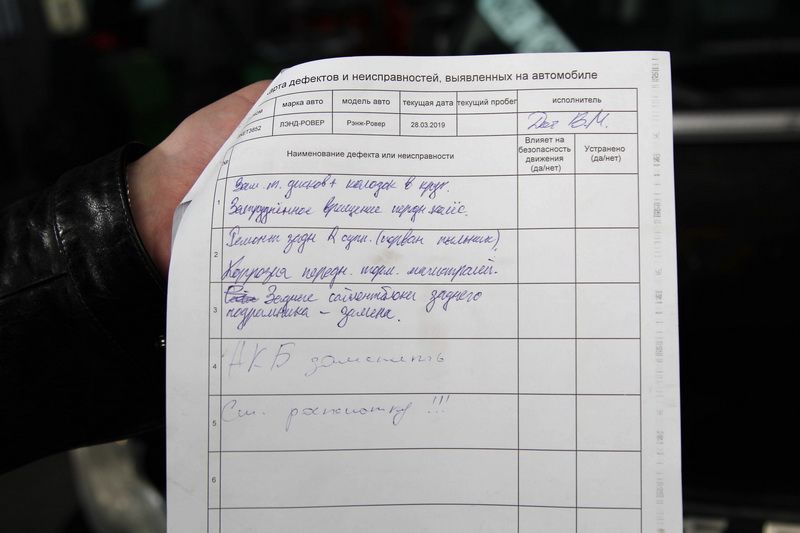 арта дефектов и неисправностей, выявленных на автомобиле
марка авто модель авто текущая дата текущий пробег исполнитель
ЛЭНД-РОВЕР Рэнж-Ровер 28.03.2019 В.М.
Наименование дефекта или неисправности Влияет на безопасность движения (да/нет) Устранено (да/нет)
1 Зам. т. дисков + колодок в круг.
Затруднённое вращение передн. колёс.
2 Ремонт задн R супп. (порван пыльник)
Коррозия передн. торм. магистралей.
3 Задние сайлентблоки заднего
подрамника – замена.
4 АКБ заменить
5 См. распечатку !!!
6